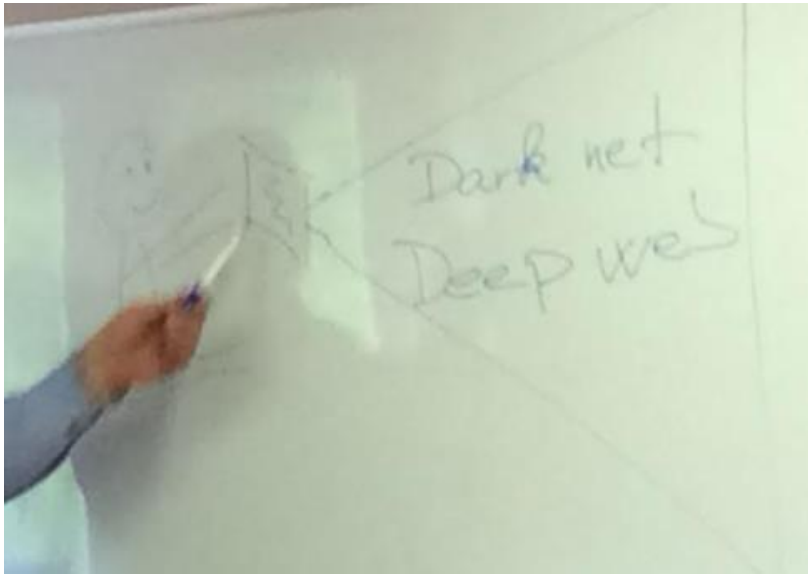 Dark net
Deep web